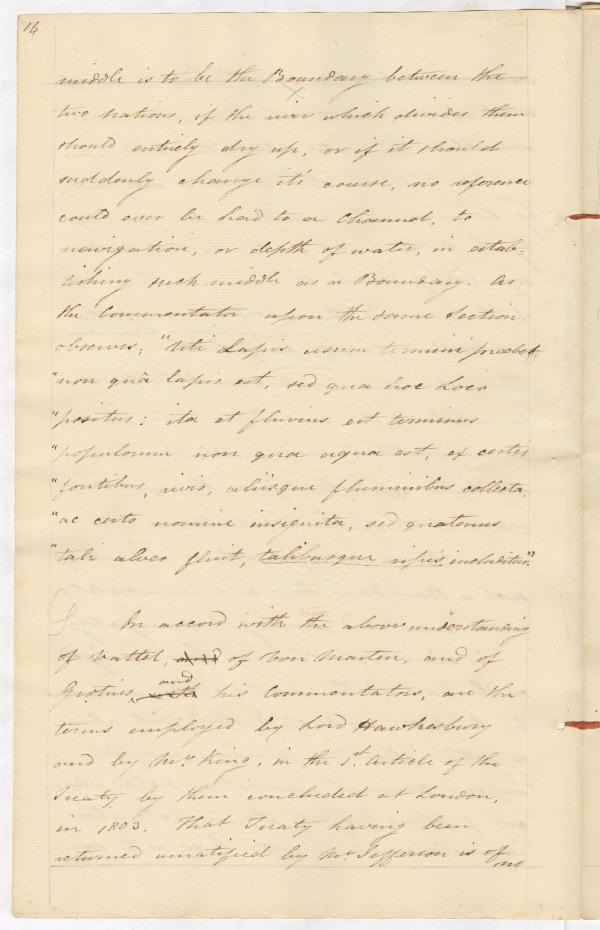 14
middle is to be the Boundary between the
two nations, if the river which divides them
should entirely dry up, or if it should
suddenly change it's course, no reference
could ever be had to a Channel, to
navigation, or depth of water, in estab=
lishing such middle as a Boundary. As
the Commentator upon the same Section
observes, "Uti Lapis usum termini præbet
"non quà lapis est, sed qua hoc Loco
"positus: ita et fluvius est terminus
"populorum non qua aqua est, ex certis
"fontibus, rivis, aliisque fluminibus collecta,
"ac certo nomine insignita, sed quatenus
"tali alveo fluit, talibusque ripis includitur."
In accord with the above understanding
of Vattel, and of Von Marten, and of
Grotius, with and his Commentators, are the
terms employed by Lord Hawkesbury
and by Mr. King, in the 1st. Article of the
Treaty by them concluded at London,
in 1803. That Treaty having been
returned unratified by Mr. Jefferson is of
no